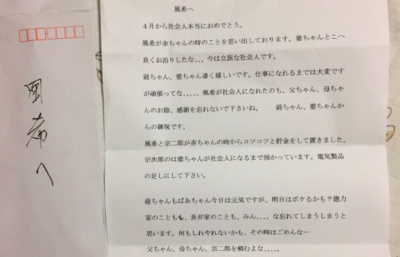 風希へ
風希へ
4月から社会人本当におめでとう。
風希が赤ちゃんの時のことを思い出しております。婆ちゃんとこへ
良くお泊りしたな、、、今は立派な社会人です。
爺ちゃん、婆ちゃん凄く嬉しいです。仕事になれるまでは大変です
が頑張ってな、、、、風希が社会人になれたのも、父ちゃん、母ちゃ
んのお陰、感謝を忘れないで下さいね。 爺ちゃん、婆ちゃんか
らの御祝です。
風希と宗二郎が赤ちゃんの時からコツコツと貯金をして置きました。
宗次郎のは婆ちゃんが社会人になるまで預かっています。電気製品
の足しにして下さい。
爺ちゃんもばあちゃん今日は元気ですが、明日はボケるかも?徳力
家のことも、長井家のことも、みん、、、、な忘れてしまうしまうと
思います。何もしれやれないかも、その時はごめんな―
父ちゃん、母ちゃん、宗二郎を頼むよな、、、、